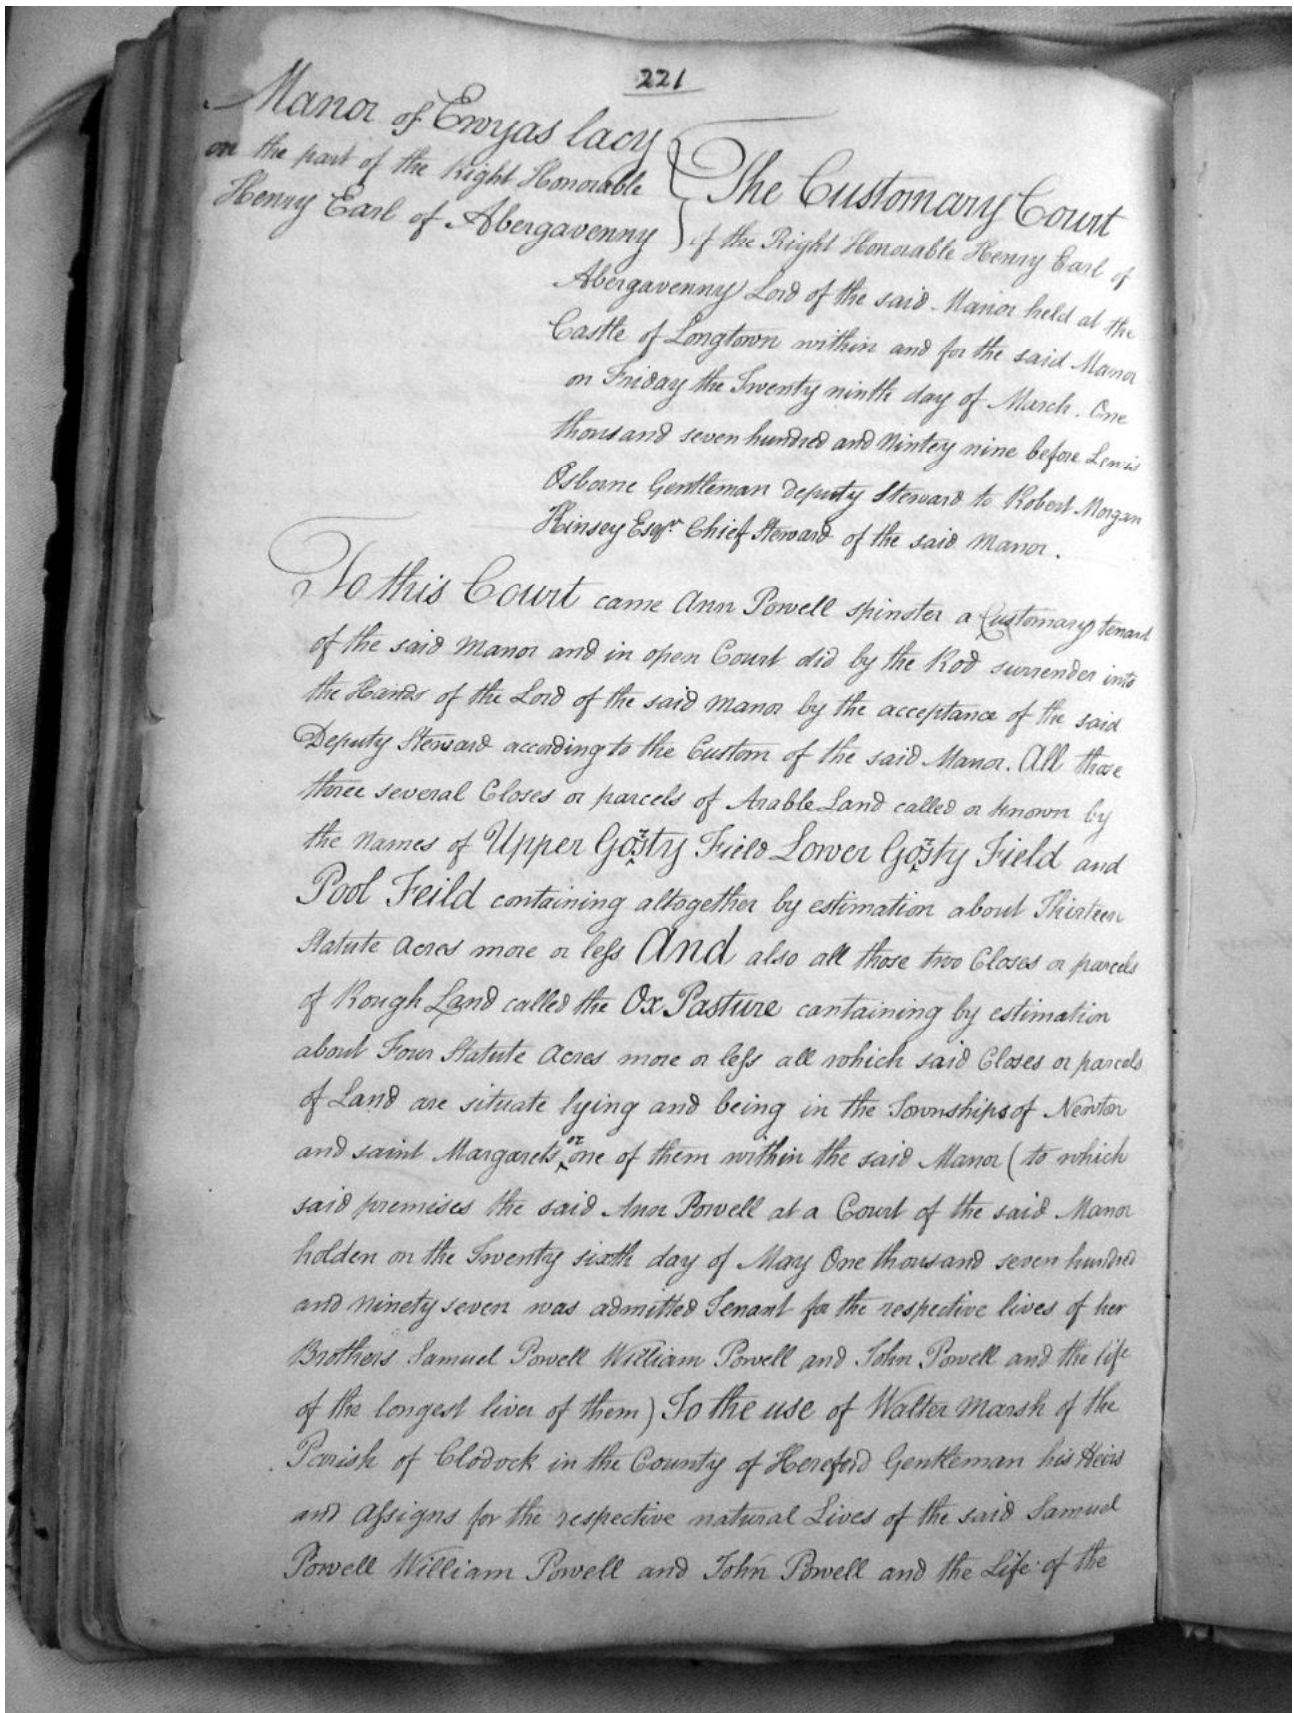 221
Manor of Ewyas lacy
on the part of the Right Honorable
Henry Earl of Abergavenny
The Customary Court
of the Right Honorable Henry Earl of
Abergavenny Lord of the said Manor held at the
Castle of Longtown within and for the said Manor
on Friday the Twenty ninth day of March. One
thousand seven hundred and Nintey nine before Lewis
Osborne Gentleman Deputy Steward to Robert Morgan
Kinsey Esqr. Chief Steward of the said Manor.
To this Court came Ann Powell spinster a Customary tenant
of the said Manor and in open Court did by the Rod surrender into
the Hands of the Lord of the said Manor by the acceptance of the said
Deputy Steward according to the Custom of the said Manor. All those
three several Closes or parcels of Arable Land called or known by
the Names of Upper Gorsty Field Lower Gorsty Field and
Pool Feild containing altogether by estimation about Thirteen
Statute Acres more or less And also all those two Closes or parcels
of Rough Land called the Ox Pasture cantaining by estimation
about Four Statute Acres more or less all which said Closes or parcels
of Land are situate lying and being in the Townships of Newton
and saint Margarets or one of them within the said Manor ( to which
said premises the said Ann Powell at a Court of the said Manor
holden on the Twenty sixth day of May One thousand seven hundred
and Ninety seven was admitted Tenant for the respective lives of her
Brothers Samuel Powell William Powell and John Powell and the life
of the longest liver of them ) To the use of Walter Marsh of the
Parish of Clodock in the County of Hereford Gentleman his Heirs
and Assigns for the respective natural Lives of the said Samuel
Powell William Powell and John Powell and the Life of the